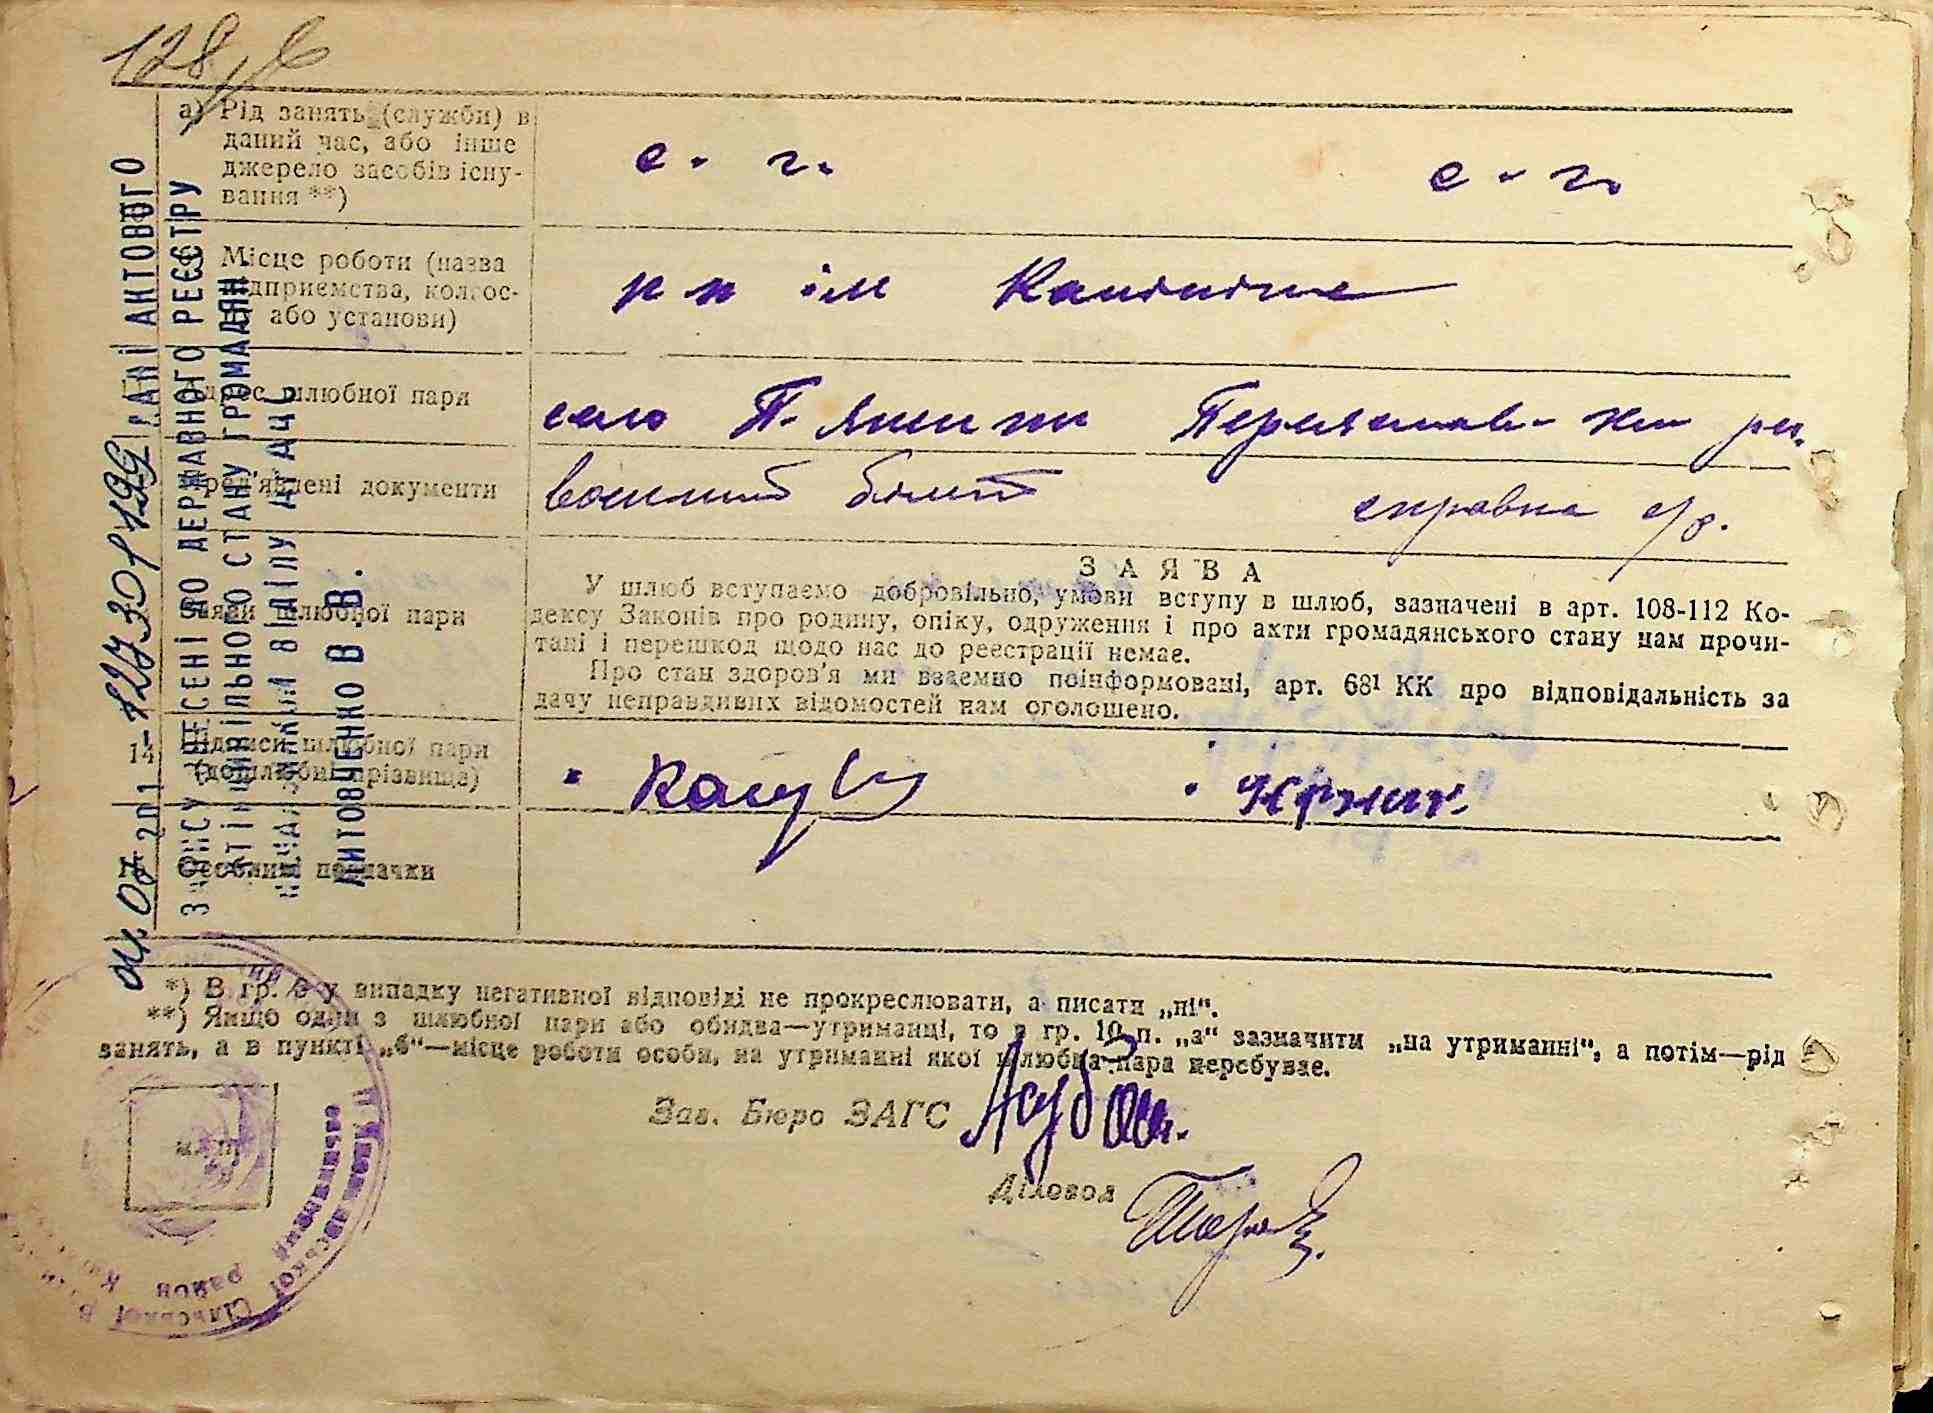 128
а) Рід занять (служби) в
даний час, або інше
джерело засобів існу-
вання **)
с. г.
с. г.
Місце роботи (назва
підприємства, колгос-
або установи)
ім
Адрес шлюбної пари
село П-
Пред'явлені документи
воєнний білет
справка с/р.
Заяви шлюбної пари
ЗАЯВА
У шлюб вступаємо добровільно, умови вступу в шлюб, зазначені в арт. 108-112 Ко-
дексу Законів про родину, опіку, одруження і про акти громадянського стану нам прочи-
тані і перешкод щодо нас до реєстрації немає.
Про стан здоров'я ми взаємно поінформовані, арт. 68¹ КК про відповідальність за
дачу неправдивих відомостей нам оголошено.
14
Підписи шлюбної пари
(дошлюбні прізвища)
Особливі позначки
*) В гр. 8 у випадку негативної відповіді не прокреслювати, а писати „ні“.
**) Якщо один з шлюбної пари або обидва—утриманці, то в гр. 10 п. „а“ зазначити „на утриманні“, а потім—рід
занять, а в пункті „б“—місце роботи особи, на утриманні якої шлюбна пара перебуває.
Зав. Бюро ЗАГС
Діловод
м. п.
ДАНІ АКТОВОГО
ЗАПИСУ ВНЕСЕНІ ДО ДЕРЖАВНОГО РЕЄСТРУ
АКТІВ ЦИВІЛЬНОГО СТАНУ ГРОМАДЯН.
НАЧАЛЬНИК ВІДДІЛУ ДРАЦС
ЛИТОВЧЕНКО В. В.
сільської
район